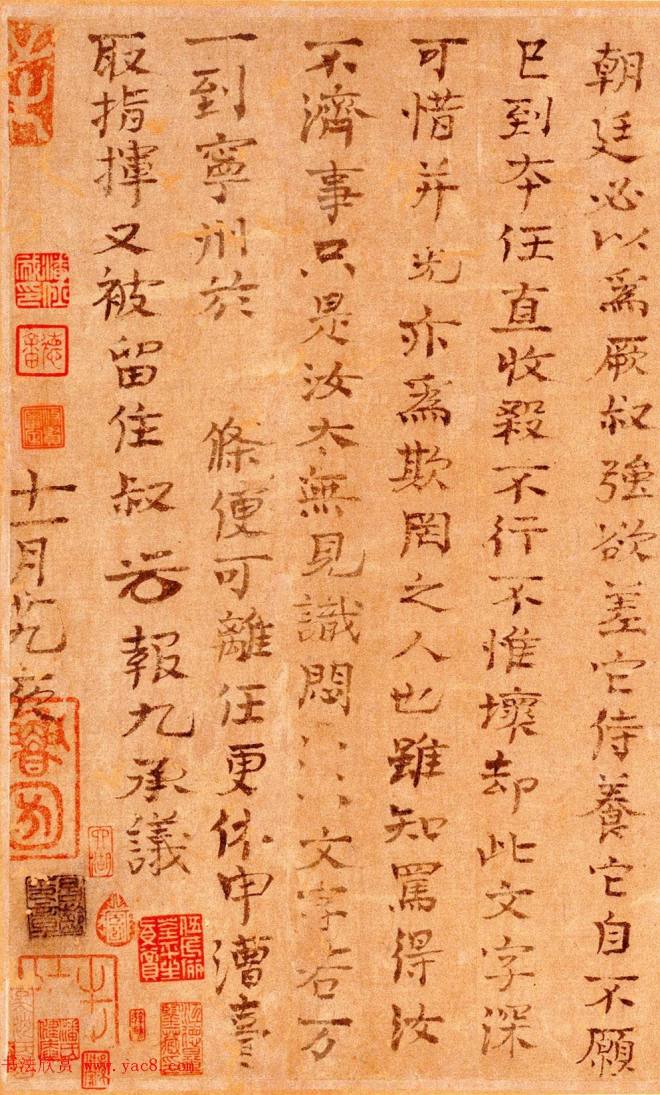 朝廷必以為厥叔強欲差它侍養它自不願
已到夲任直收殺不行不惟壞却此文字深
可惜并光亦為欺罔之人也雖知罵得汝
不濟事只是汝太無見識悶〻文字若万
一到寧州於 條便可離任更休申漕臺
取指揮又被留住叔 光 報九承議
十一月 夜
书法欣赏 www.yac8.com